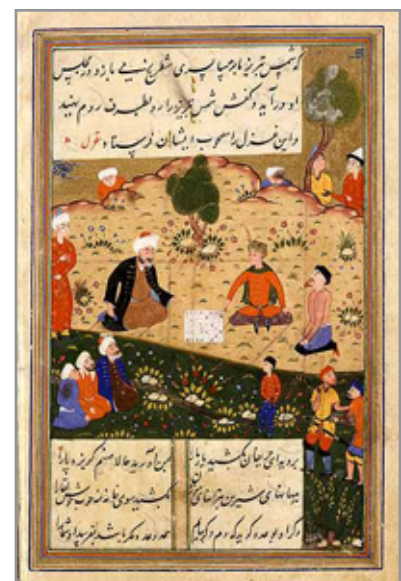 که شمس تبریز با ترسا پسری شطرنج می بازد در مجلس
او در آید و کفش شمس تبریز را در طرف روم نهید
و این غزل را مصحوب ایشان فرستاد غزل
بروید ای حریفان بکشید یار ما را بمن آورید حالا صنم گریز پا را
ببهانهای شیرین بترانهای بکشید سوی خانه مه خوب خوش لقا را
وگر او بوعده گوید که دم دگر بیایم همه وعده مکر باشد بفریبد او شما را